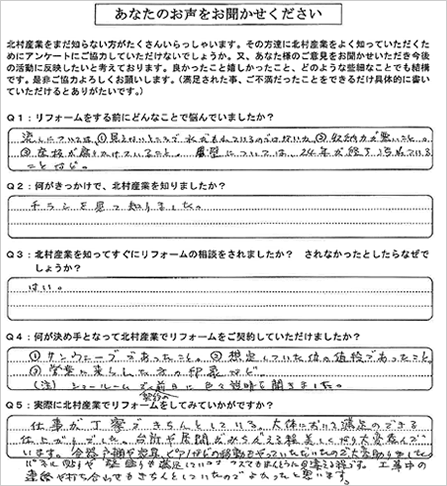 あなたのお声をお聞かせください
北村産業をまだ知らない方がたくさんいらっしゃいます。その方達に北村産業をよく知っていただくため
にアンケートにご協力していただけないでしょうか。又、あなた様のご意見をお聞かせいただき今後
の活動に反映したいと考えております。良かったこと嬉しかったこと、どのような些細なことでも結構
です。是非ご協力よろしくお願いします。（満足された事、ご不満だったことをできるだけ具体的に書い
ていただけるとありがたいです。）
Q1：リフォームをする前にどんなことで悩んでいましたか？
流しについては、①見えないところで水がもれているのではないか ②収納力が悪いこと。
ことなど。
Q2：何がきっかけで、北村産業を知りましたか？
チラシを見て知りました。
Q3：北村産業を知ってすぐにリフォームの相談をされましたか？ されなかったとしたらなぜで
しょうか？
はい。
Q4：何が決め手となって北村産業でリフォームをご契約していただけましたか？
①サンウェーブであったこと。②想定していた位の値段であったこと。
③営業に来られた方の印象など。
(注) ショールームで契約の前日に色々説明を聞きました。
Q5：実際に北村産業でリフォームをしてみていかがですか？
仕事が丁寧できちんとしている。大体において満足のできる
仕上がりでした。台所や居間
います。
工事中の
連絡や打ち合わせもきちんとしていたのでよかったと思います。